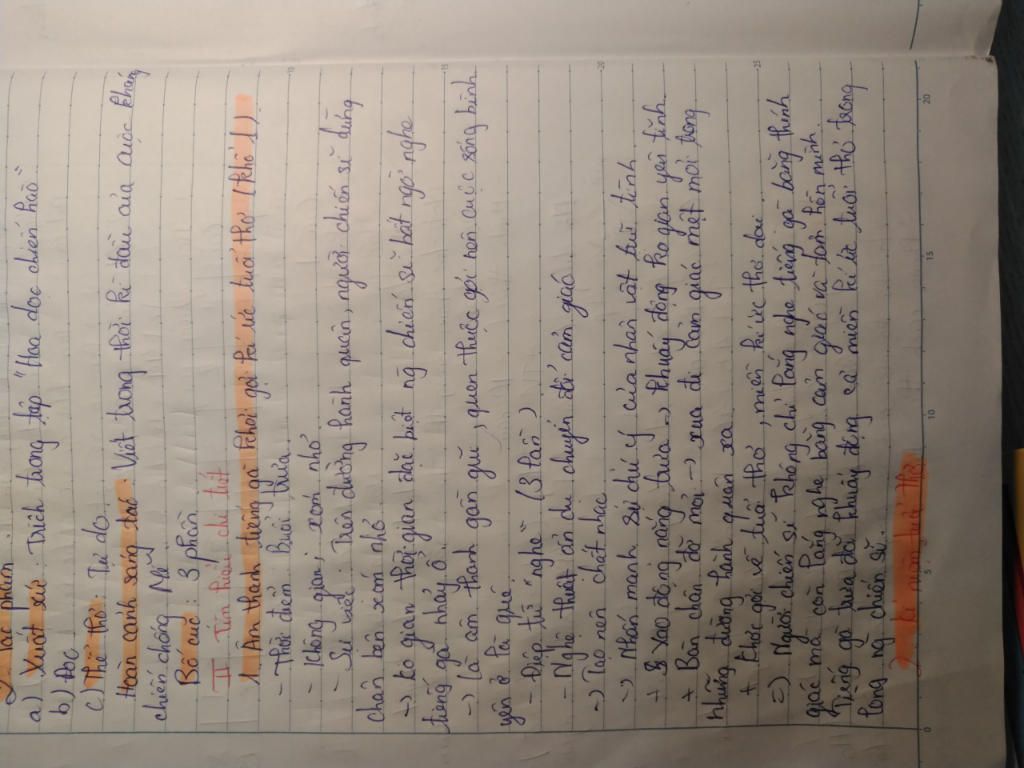 2. Tác phẩm
a) Xuất xứ: Trích trong tập "Hoa dọc chiến hào".
b) Đọc
c) Thể thơ: Tự do.
Hoàn cảnh sáng tác: Viết trong thời kì đầu của cuộc kháng
chiến chống Mỹ
Bố cục: 3 phần
II Tìm hiểu chi tiết
1. Âm thanh tiếng gà khơi gợi kí ức tuổi thơ (khổ 1)
- Thời điểm: Buổi trưa.
- Không gian: xóm nhỏ
- Sự việc: Trên đường hành quân, người chiến sĩ dừng
chân bên xóm nhỏ
-> ko gian thời gian đặc biệt ng chiến sĩ bất ngờ nghe
tiếng gà nhảy ổ.
-> Là âm thanh gần gũi, quen thuộc gợi nên cuộc sống bình
yên ở là quê
- Điệp từ "nghe" (3 lần)
- Nghệ thuật ẩn dụ chuyển đổi cảm giác
-> Tạo nên chất nhạc
-> Nhấn mạnh sự chú ý của nhân vật trữ tình
+ Xao động nắng trưa -> khuấy động ko gian yên tĩnh
+ Bàn chân đỡ mỏi -> xua đi cảm giác mệt mỏi trong
những đường hành quân xa
+ khơi gợi về tuổi thơ, miền kí ức thơ dại
=> Người chiến sĩ không chỉ lắng nghe tiếng gà bằng thính
giác mà còn lắng nghe bằng cảm giác và tâm hồn mình
Tiếng gà trưa đã khuấy động cả miền kí ức tuổi thơ trong
lòng ng chiến sĩ.
2. kỉ niệm tuổi thơ